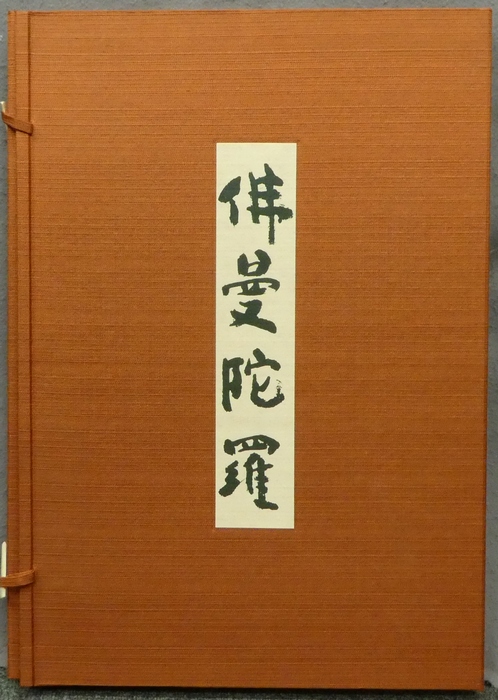 佛曼陀羅